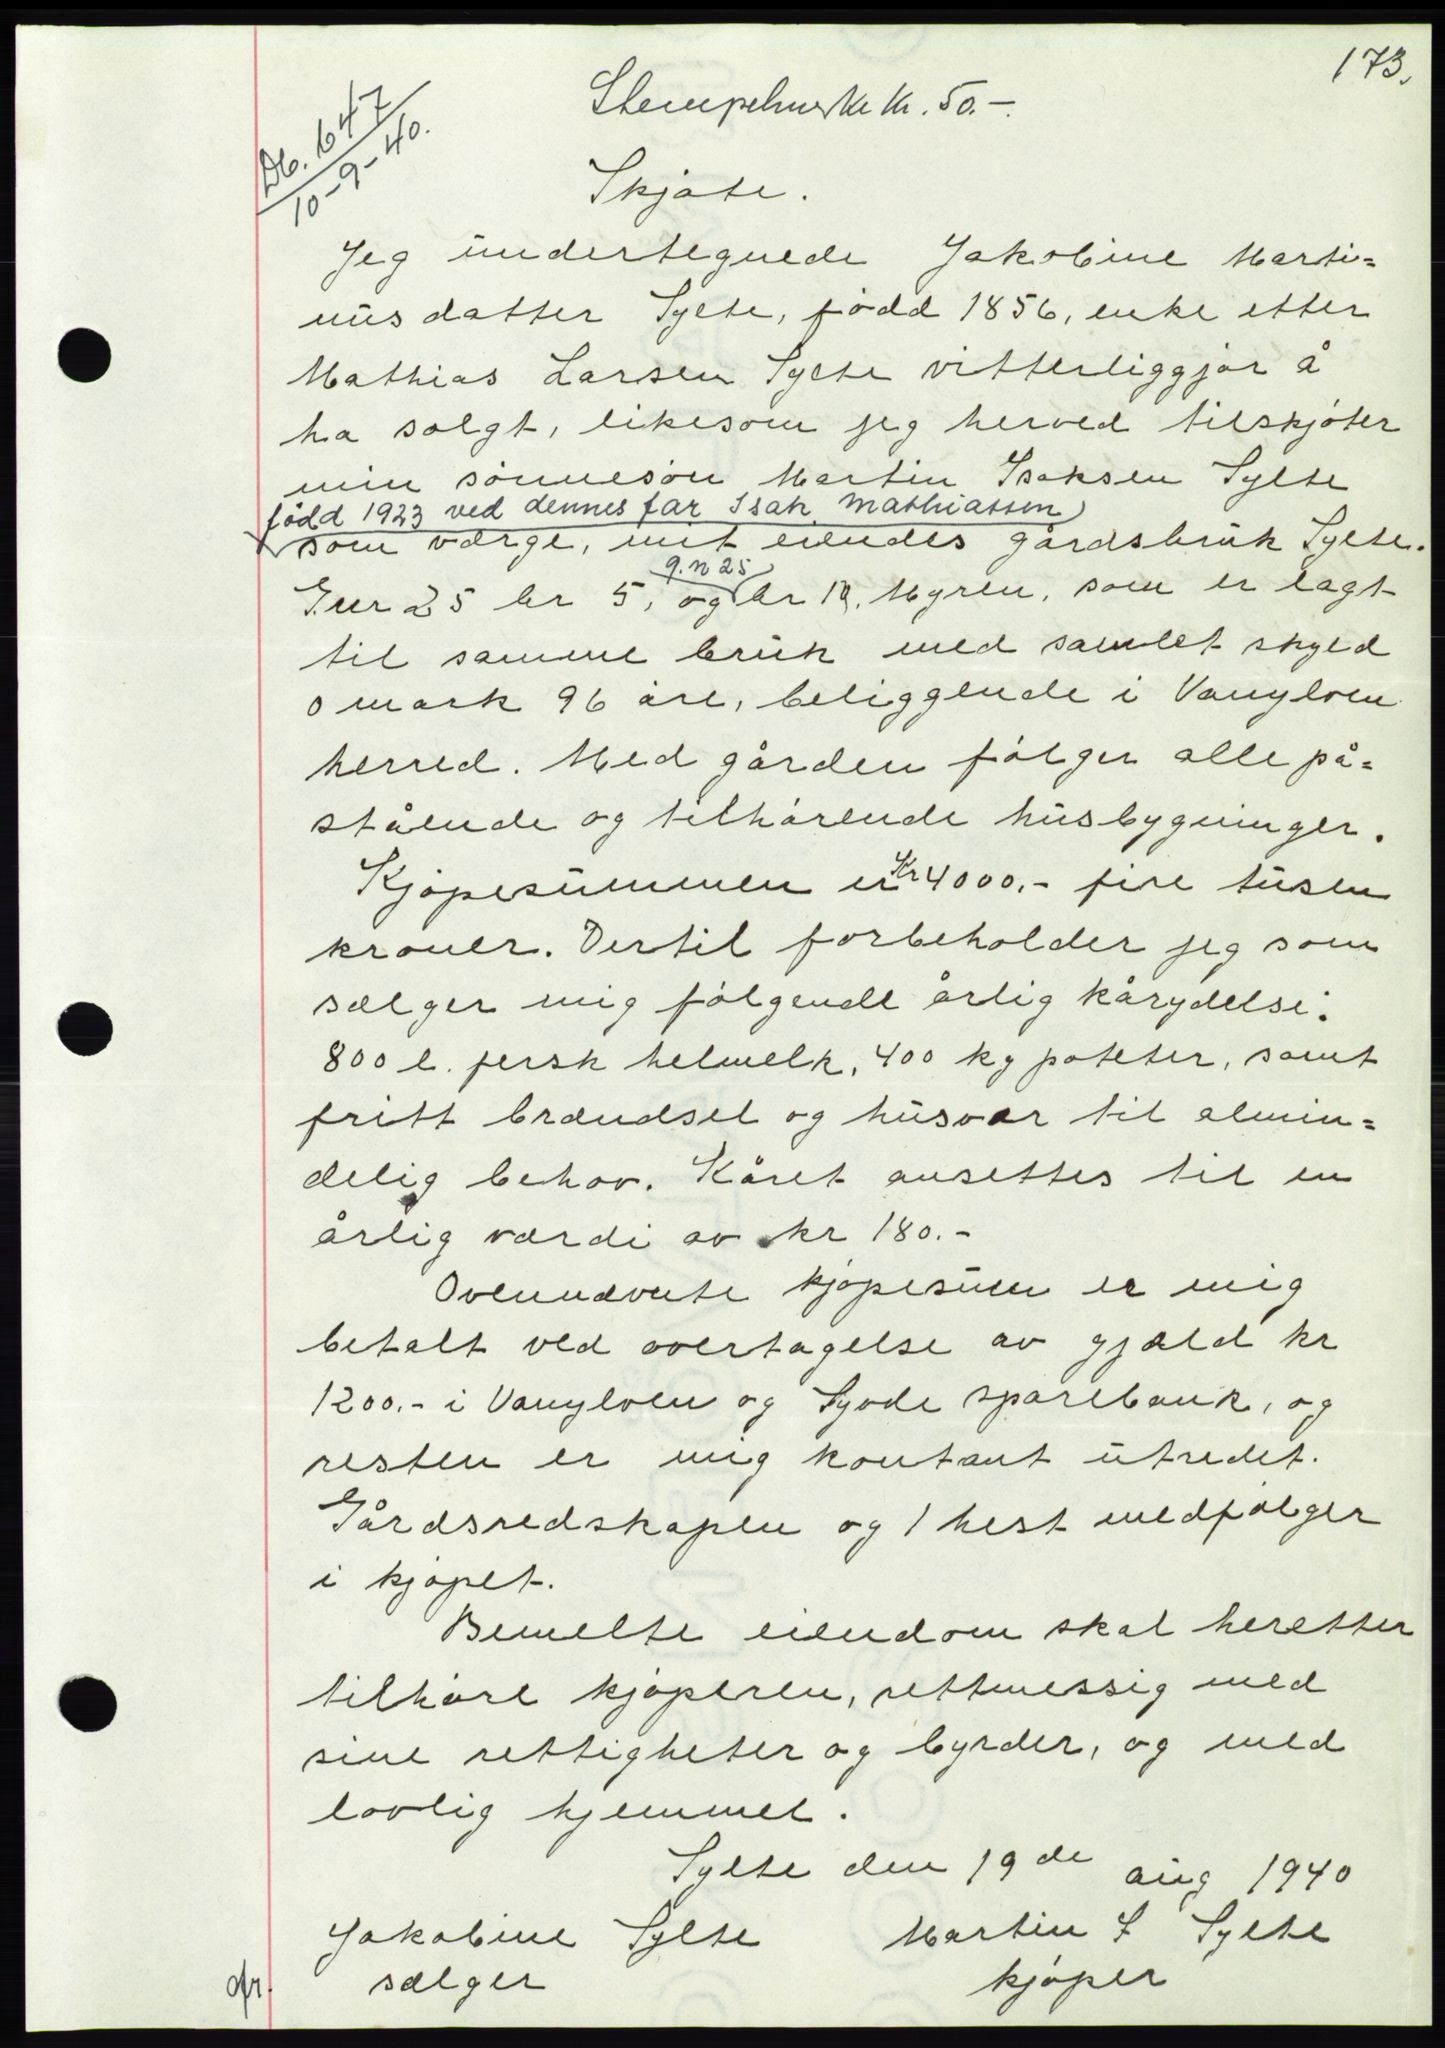 173.
Stempelmerke kr. 50.-
Db. 647
10-9-40.
Skjøte.
Jeg undertegnede Jakobine Marti=
nusdatter Sylte, född 1856, enke etter
Mathias Larsen Sylte vitterliggjør å
ha solgt, likesom jeg herved tilskjøter
min sønnesøn Martin Isaksen Sylte
född 1923 ved dennes far Isak Mathiassen
som værge, mit eiendes gårdsbruk Sylte.
g.n 25
Gnr 25 br 5, og br 12, Myren, som er lagt
til samme bruk med samlet skyld
0 mark 96 øre, beliggende i Vanylven
herred. Med gården følger alle på=
stående og tilhørende husbygninger.
Kjøpesummen er Kr 4000.- fire tusen
kroner. Dertil forbeholder jeg som
sælger mig følgende årlig kårydelse:
800 l. fersk helmelk, 400 kg poteter, samt
fritt brændsel og husvær til almin=
delig behov. Kåret ansettes til en
årlig værdi av kr 180.-
Ovennævnte kjøpesum er mig
betalt ved overtagelse av gjæld kr
1200.- i Vanylven og Syvde sparebank, og
resten er mig kontant utredet.
Gårdsredskapen og 1 hest medfølger
i kjøpet.
Bemelte eiendom skal heretter
tilhøre kjøperen, rettmessig med
sine rettigheter og byrder, og med
lovlig hjemmel.
Sylte den 19de aug 1940
Jakobine Sylte Martin I Sylte
sælger kjøper